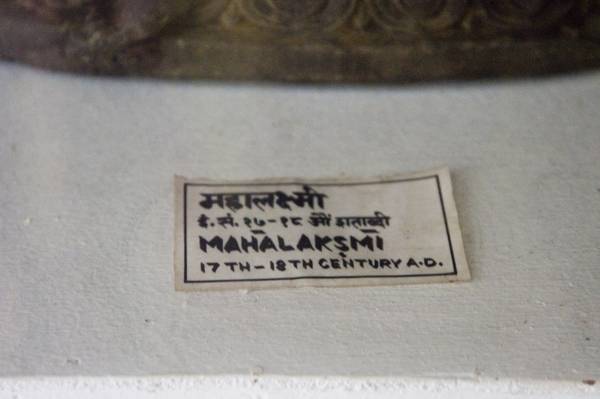 महालक्ष्मी
ई. सं. १७-१८ औं शताब्दी
MAHĀLAKṢMĪ
17TH-18TH CENTURY A.D.